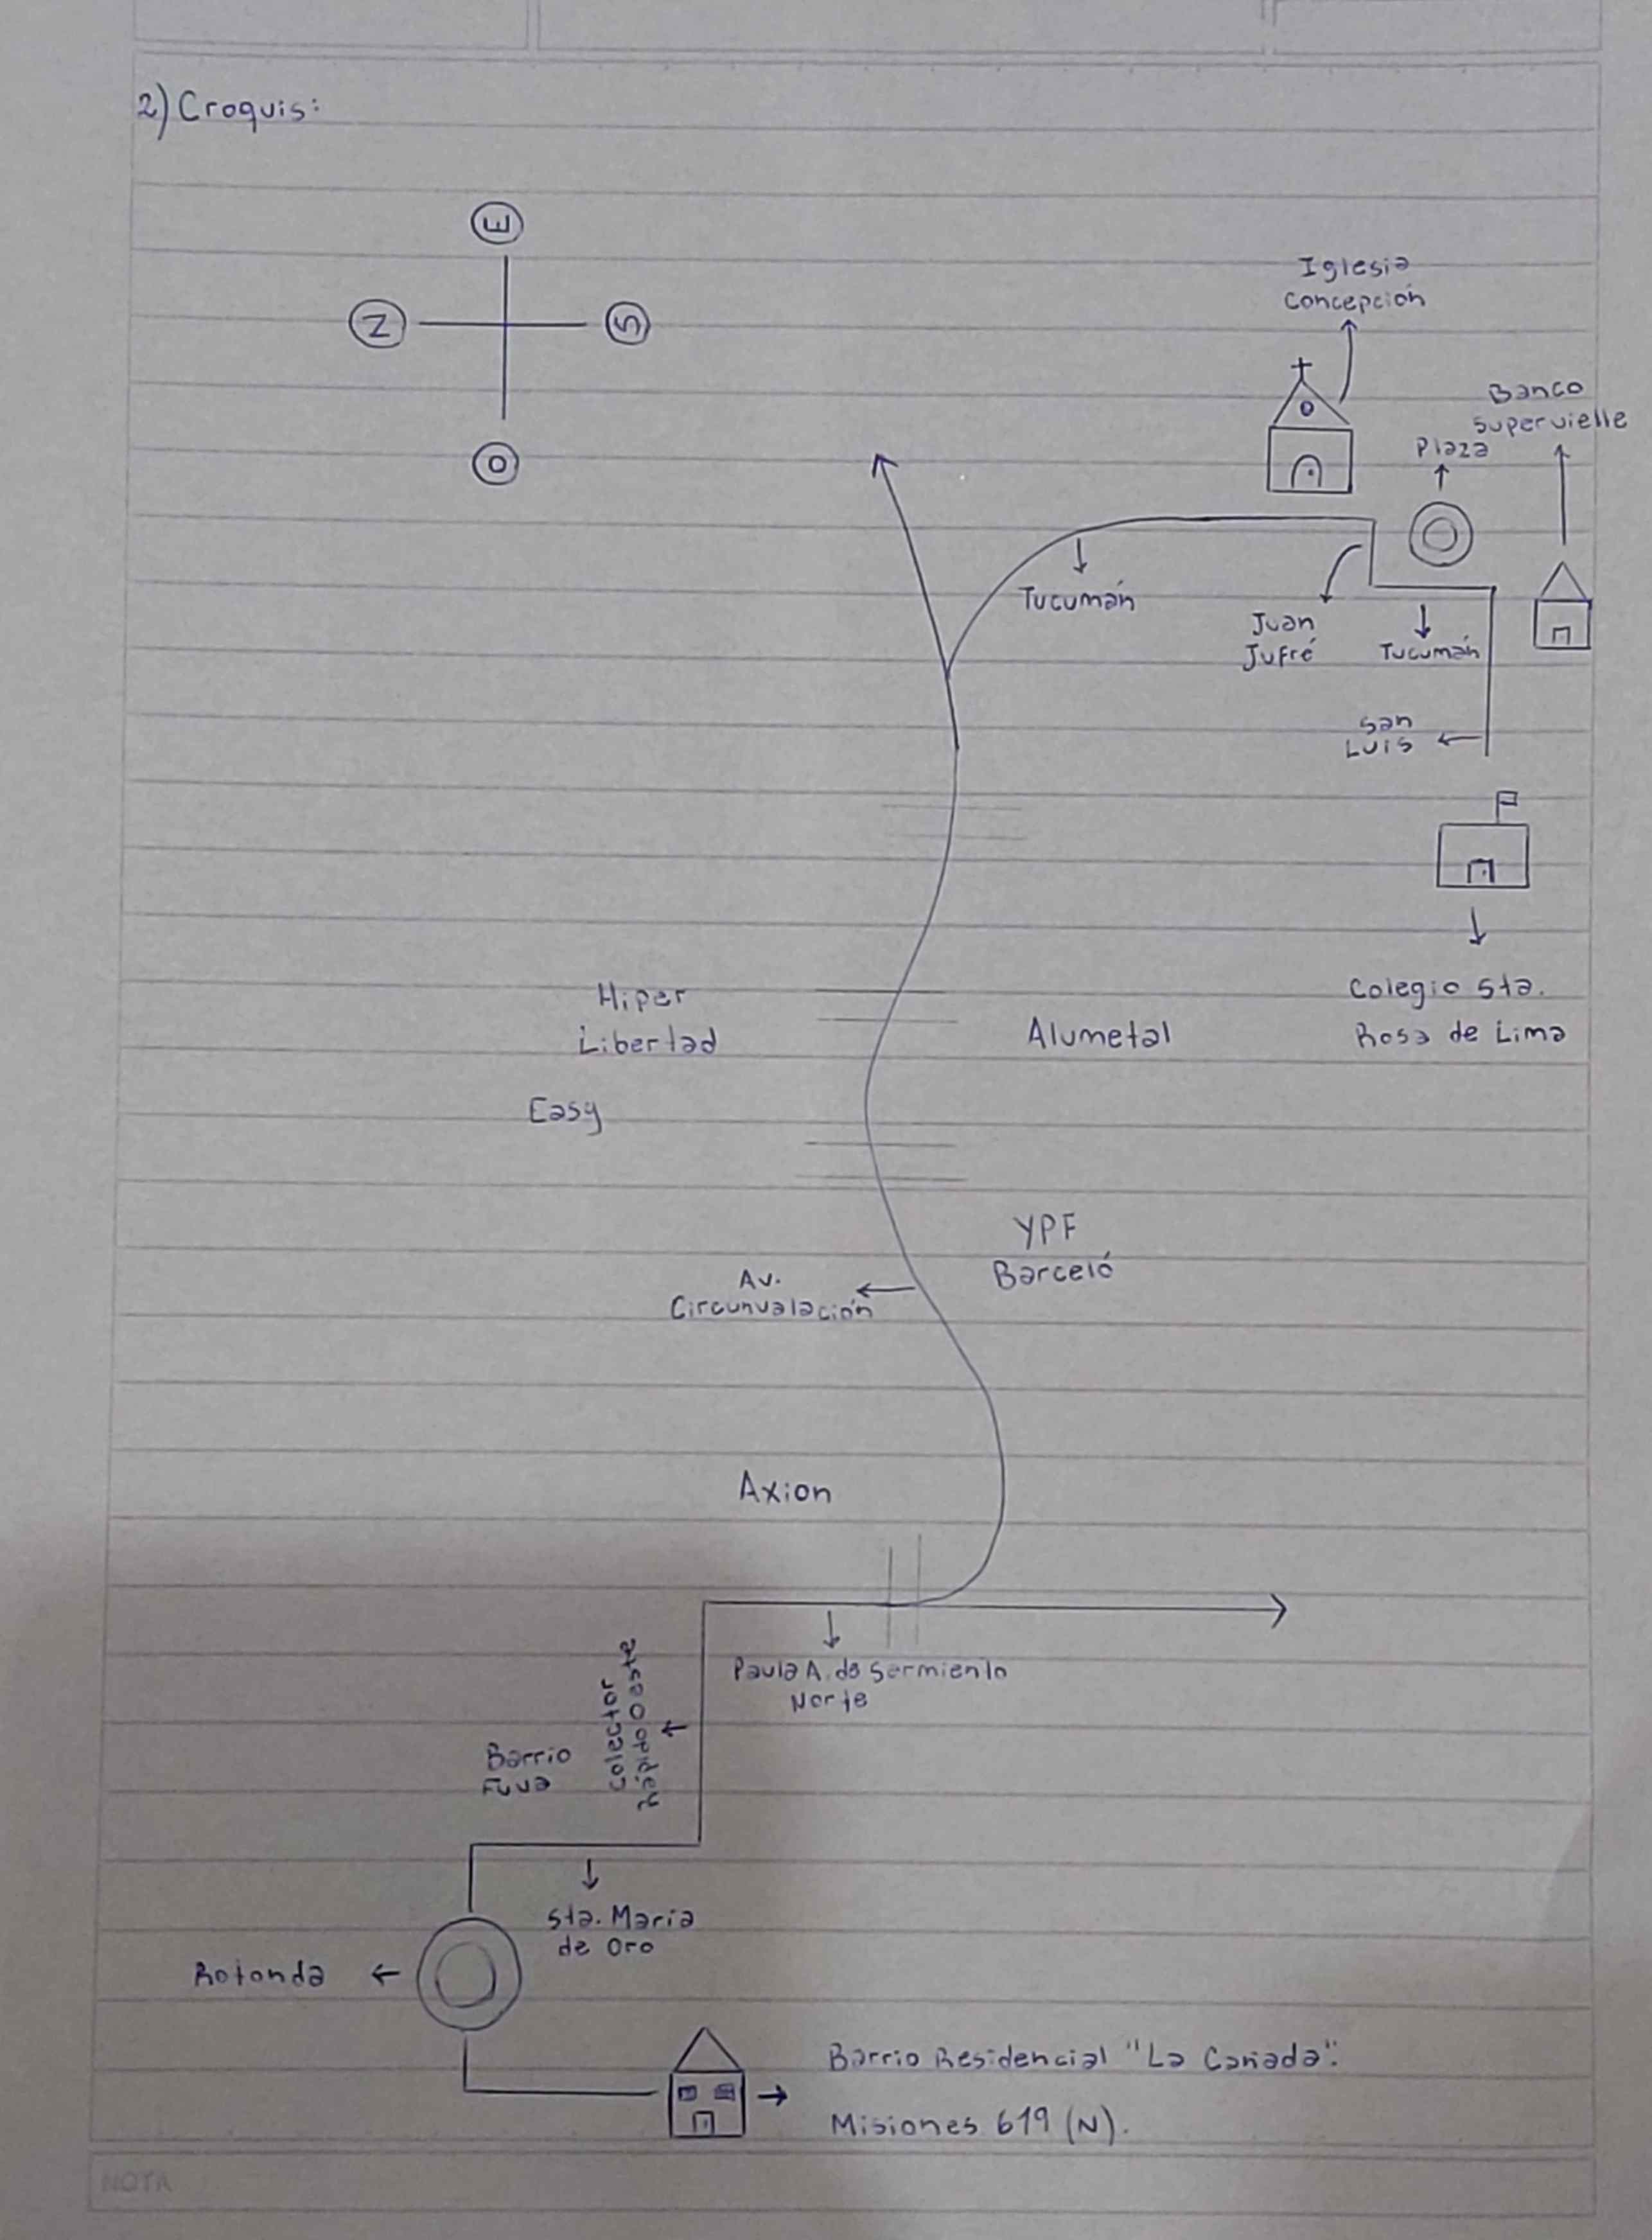 2) Croquis:
E
N
S
O
Iglesia
Concepción
Banco
Supervielle
Plaza
Tucumán
Juan
Jufré
Tucumán
San
Luis
Colegio Sta.
Rosa de Lima
Hiper
Libertad
Alumetal
Easy
YPF
Barceló
Av.
Circunvalación
Axion
Paula A. de Sarmiento
Norte
Colector
Rápido Oeste
Barrio
Fuva
Sta. Maria
de Oro
Rotonda
Barrio Residencial "La Cañada".
Misiones 619 (N).
NOTA